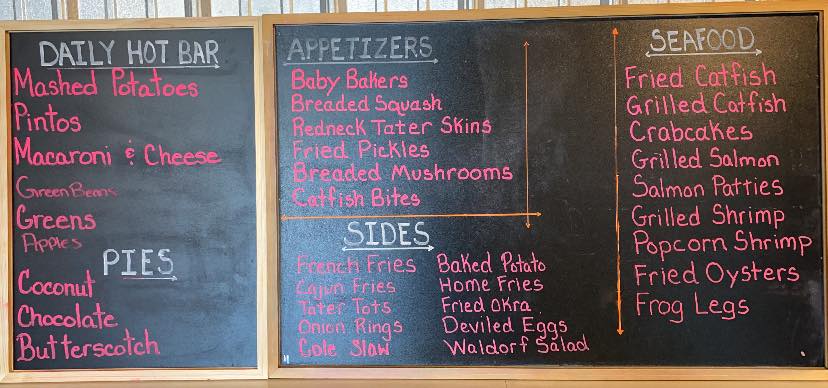 DAILY HOT BAR
Mashed Potatoes
Pintos
Macaroni & Cheese
Green Beans
Greens
Apples
PIES
Coconut
Chocolate
Butterscotch
APPETIZERS
Baby Bakers
Breaded Squash
Redneck Tater Skins
Fried Pickles
Breaded Mushrooms
Catfish Bites
SIDES
French Fries
Cajun Fries
Tater Tots
Onion Rings
Cole Slaw
Baked Potato
Home Fries
Fried Okra
Deviled Eggs
Waldorf Salad
SEAFOOD
Fried Catfish
Grilled Catfish
Crabcakes
Grilled Salmon
Salmon Patties
Grilled Shrimp
Popcorn Shrimp
Fried Oysters
Frog Legs